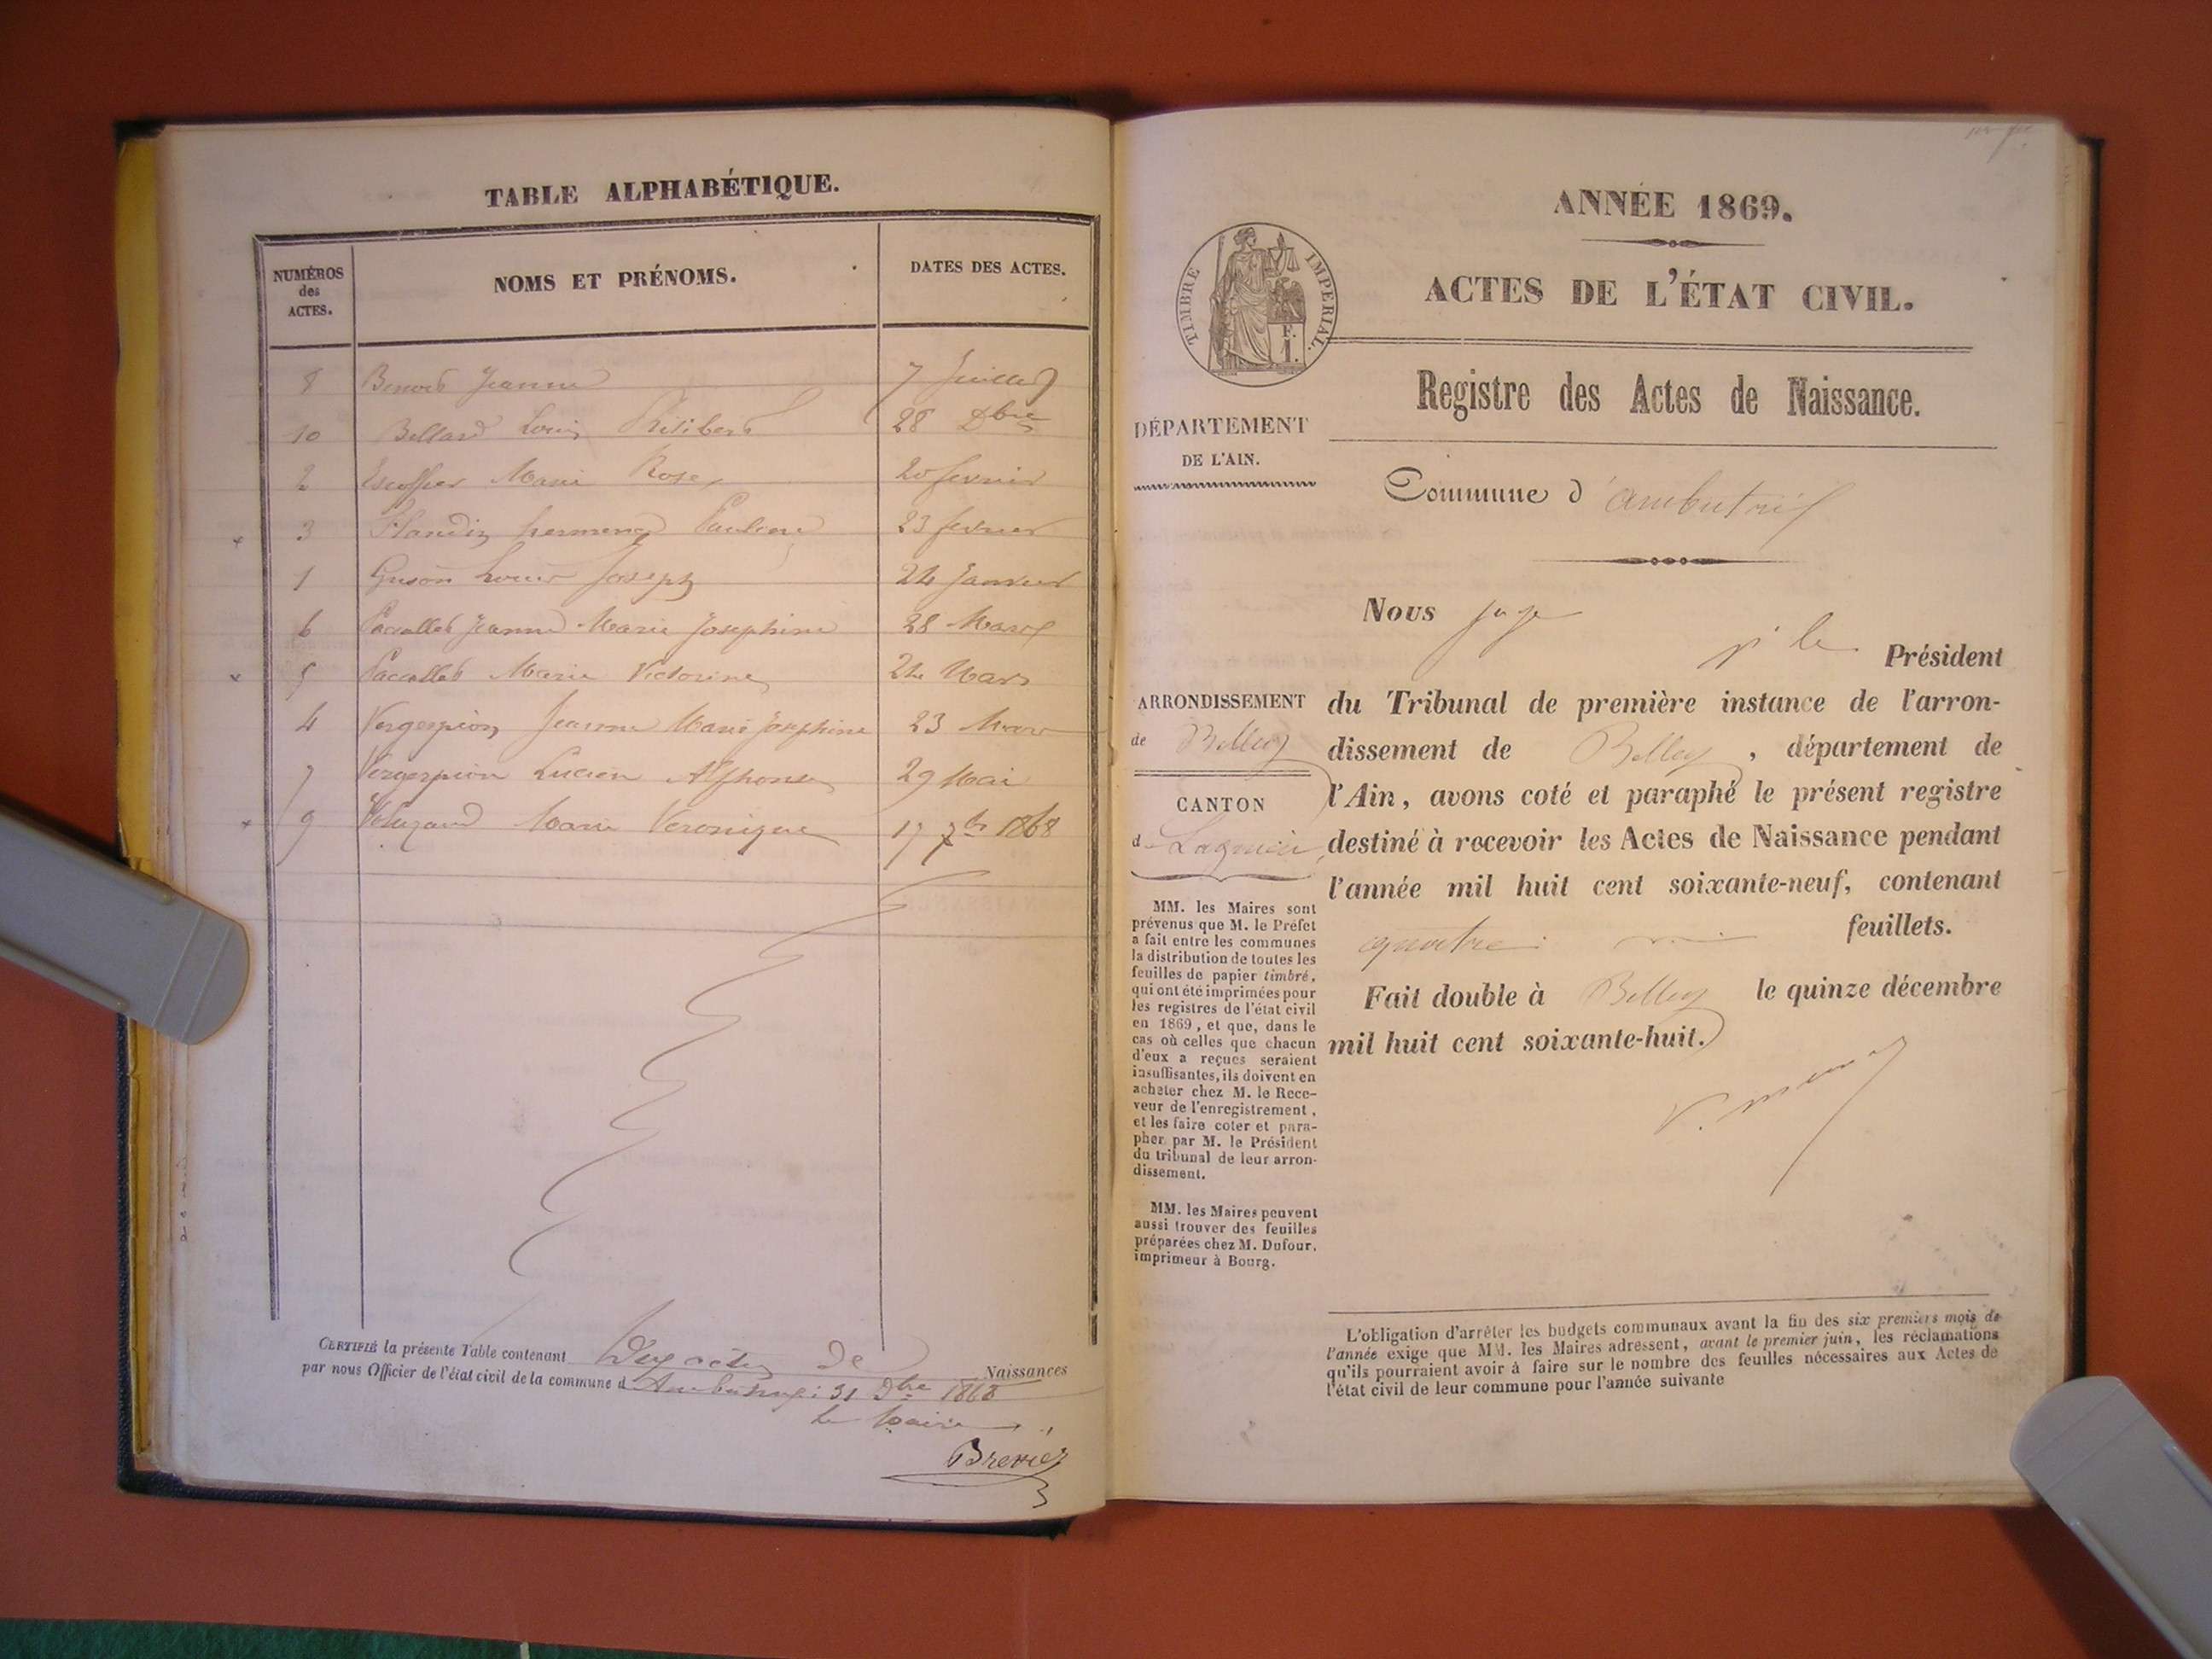 TABLE ALPHABÉTIQUE.
NUMÉROS
des
ACTES.
NOMS ET PRÉNOMS.
DATES DES ACTES.
8 Benoit Jeanne 7 Juillet
10 Bellard Louis Philibert 28 Dbre
2 Escoffier Marie Rose 20 fevrier
3 Flandin Pauline 23 fevrier
1 Guson Louis Joseph 24 Janvier
6 Paccallet Jeanne Marie Josephine 28 Mars
5 Paccallet Marie Victorine 24 Mars
4 Vergerpion Jeanne Marie Josephine 23 Mars
7 Vergerpion Lucien Alphonse 29 Mai
9 Marie Veronique 17 7bre 1868
CERTIFIÉ la présente Table contenant Dix actes de Naissances
par nous Officier de l'état civil de la commune d 31 Dbre 1868
le Maire
ANNÉE 1869.
TIMBRE IMPERIAL.
F.
1.
ACTES DE L'ÉTAT CIVIL.
Registre des Actes de Naissance.
DÉPARTEMENT
DE L'AIN.
Commune d'ambutrix
Nous juge
Président
ARRONDISSEMENT
de Belley
CANTON
de Lagnieu
du Tribunal de première instance de l'arron-
dissement de Belley, département de
l'Ain, avons coté et paraphé le présent registre
destiné à recevoir les Actes de Naissance pendant
l'année mil huit cent soixante-neuf, contenant
quatre feuillets.
Fait double à Belley le quinze décembre
mil huit cent soixante-huit.
MM. les Maires sont
prévenus que M. le Préfet
a fait entre les communes
la distribution de toutes les
feuilles de papier timbré,
qui ont été imprimées pour
les registres de l'état civil
en 1869, et que, dans le
cas où celles que chacun
d'eux a reçues seraient
insuffisantes, ils doivent en
acheter chez M. le Rece-
veur de l'enregistrement,
et les faire coter et para-
pher par M. le Président
du tribunal de leur arron-
dissement.
MM. les Maires peuvent
aussi trouver des feuilles
préparées chez M. Dufour,
imprimeur à Bourg.
L'obligation d'arrêter les budgets communaux avant la fin des six premiers mois de
l'année exige que MM. les Maires adressent, avant le premier juin, les réclamations
qu'ils pourraient avoir à faire sur le nombre des feuilles nécessaires aux Actes de
l'état civil de leur commune pour l'année suivante